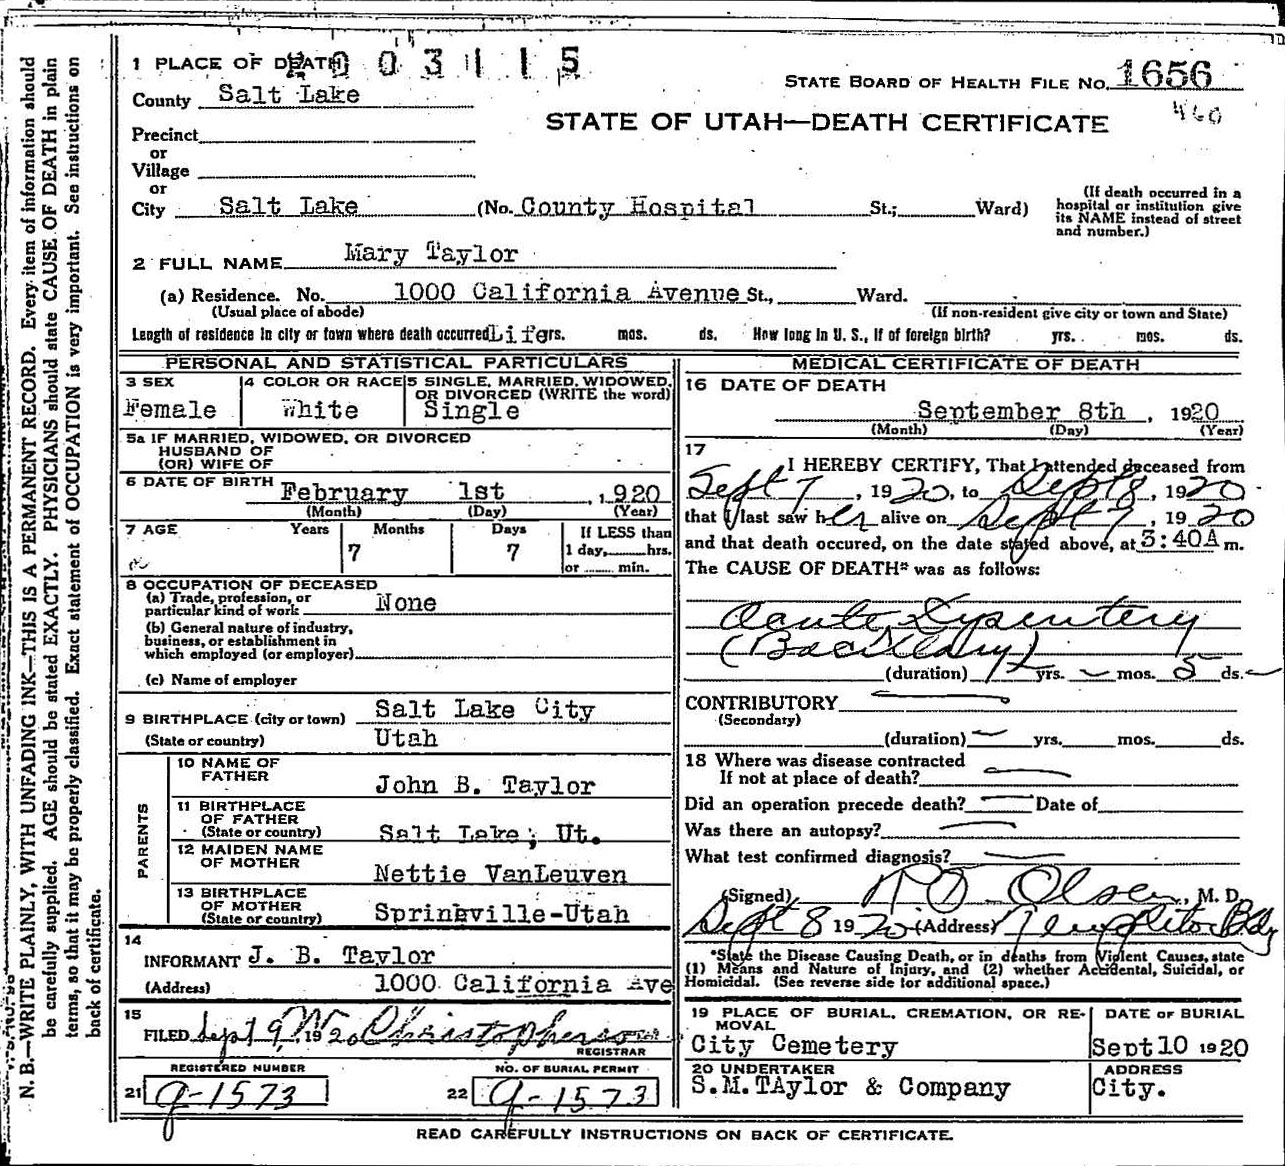 2003115
1 PLACE OF DEATH
STATE BOARD OF HEALTH FILE No. 1656
460
County Salt Lake
STATE OF UTAH—DEATH CERTIFICATE
Precinct
or
Village
or
City Salt Lake (No. County Hospital St.; Ward)
(If death occurred in a hospital or institution give its NAME instead of street and number.)
2 FULL NAME Mary Taylor
(a) Residence. No. 1000 California Avenue St., Ward.
(Usual place of abode) (If non-resident give city or town and State)
Length of residence in city or town where death occurred Life yrs. mos. ds. How long in U. S., if of foreign birth? yrs. mos. ds.
PERSONAL AND STATISTICAL PARTICULARS
3 SEX Female
4 COLOR OR RACE White
5 SINGLE, MARRIED, WIDOWED, OR DIVORCED (WRITE the word) Single
5a IF MARRIED, WIDOWED, OR DIVORCED
HUSBAND OF
(OR) WIFE OF
6 DATE OF BIRTH February 1st, 1920
(Month) (Day) (Year)
7 AGE Years Months Days If LESS than
7 7 1 day, hrs.
or min.
8 OCCUPATION OF DECEASED
(a) Trade, profession, or
particular kind of work None
(b) General nature of industry,
business, or establishment in
which employed (or employer)
(c) Name of employer
9 BIRTHPLACE (city or town) Salt Lake City
(State or country) Utah
PARENTS
10 NAME OF FATHER John B. Taylor
11 BIRTHPLACE OF FATHER (State or country) Salt Lake, Ut.
12 MAIDEN NAME OF MOTHER Nettie VanLeuven
13 BIRTHPLACE OF MOTHER (State or country) Springville-Utah
14
INFORMANT J. B. Taylor
(Address) 1000 California Ave
15
FILED Sept 9, 1920 Christopherson
REGISTRAR
REGISTERED NUMBER NO. OF BURIAL PERMIT
21 9-1573 22 9-1573
MEDICAL CERTIFICATE OF DEATH
16 DATE OF DEATH
September 8th, 1920
(Month) (Day) (Year)
17
I HEREBY CERTIFY, That I attended deceased from
Sept 7, 1920, to Sept 8, 1920
that I last saw her alive on Sept 7, 1920
and that death occured, on the date stated above, at 3:40A m.
The CAUSE OF DEATH* was as follows:
Acute Dysentery
(Bacillary)
(duration) yrs. mos. 5 ds.
CONTRIBUTORY
(Secondary)
(duration) yrs. mos. ds.
18 Where was disease contracted
If not at place of death?
Did an operation precede death? Date of
Was there an autopsy?
What test confirmed diagnosis?
(Signed) Olsen, M. D.
Sept 8 1920 (Address) Templeton Bldg
*State the Disease Causing Death, or in deaths from Violent Causes, state
(1) Means and Nature of Injury, and (2) whether Accidental, Suicidal, or
Homicidal. (See reverse side for additional space.)
19 PLACE OF BURIAL, CREMATION, OR REMOVAL
City Cemetery
DATE OF BURIAL
Sept 10 1920
20 UNDERTAKER
S.M.TAylor & Company
ADDRESS
City.
READ CAREFULLY INSTRUCTIONS ON BACK OF CERTIFICATE.
N. B.—WRITE PLAINLY, WITH UNFADING INK—THIS IS A PERMANENT RECORD. Every item of information should
be carefully supplied. AGE should be stated EXACTLY. PHYSICIANS should state CAUSE OF DEATH in plain
terms, so that it may be properly classified. Exact statement of OCCUPATION is very important. See instructions on
back of certificate.